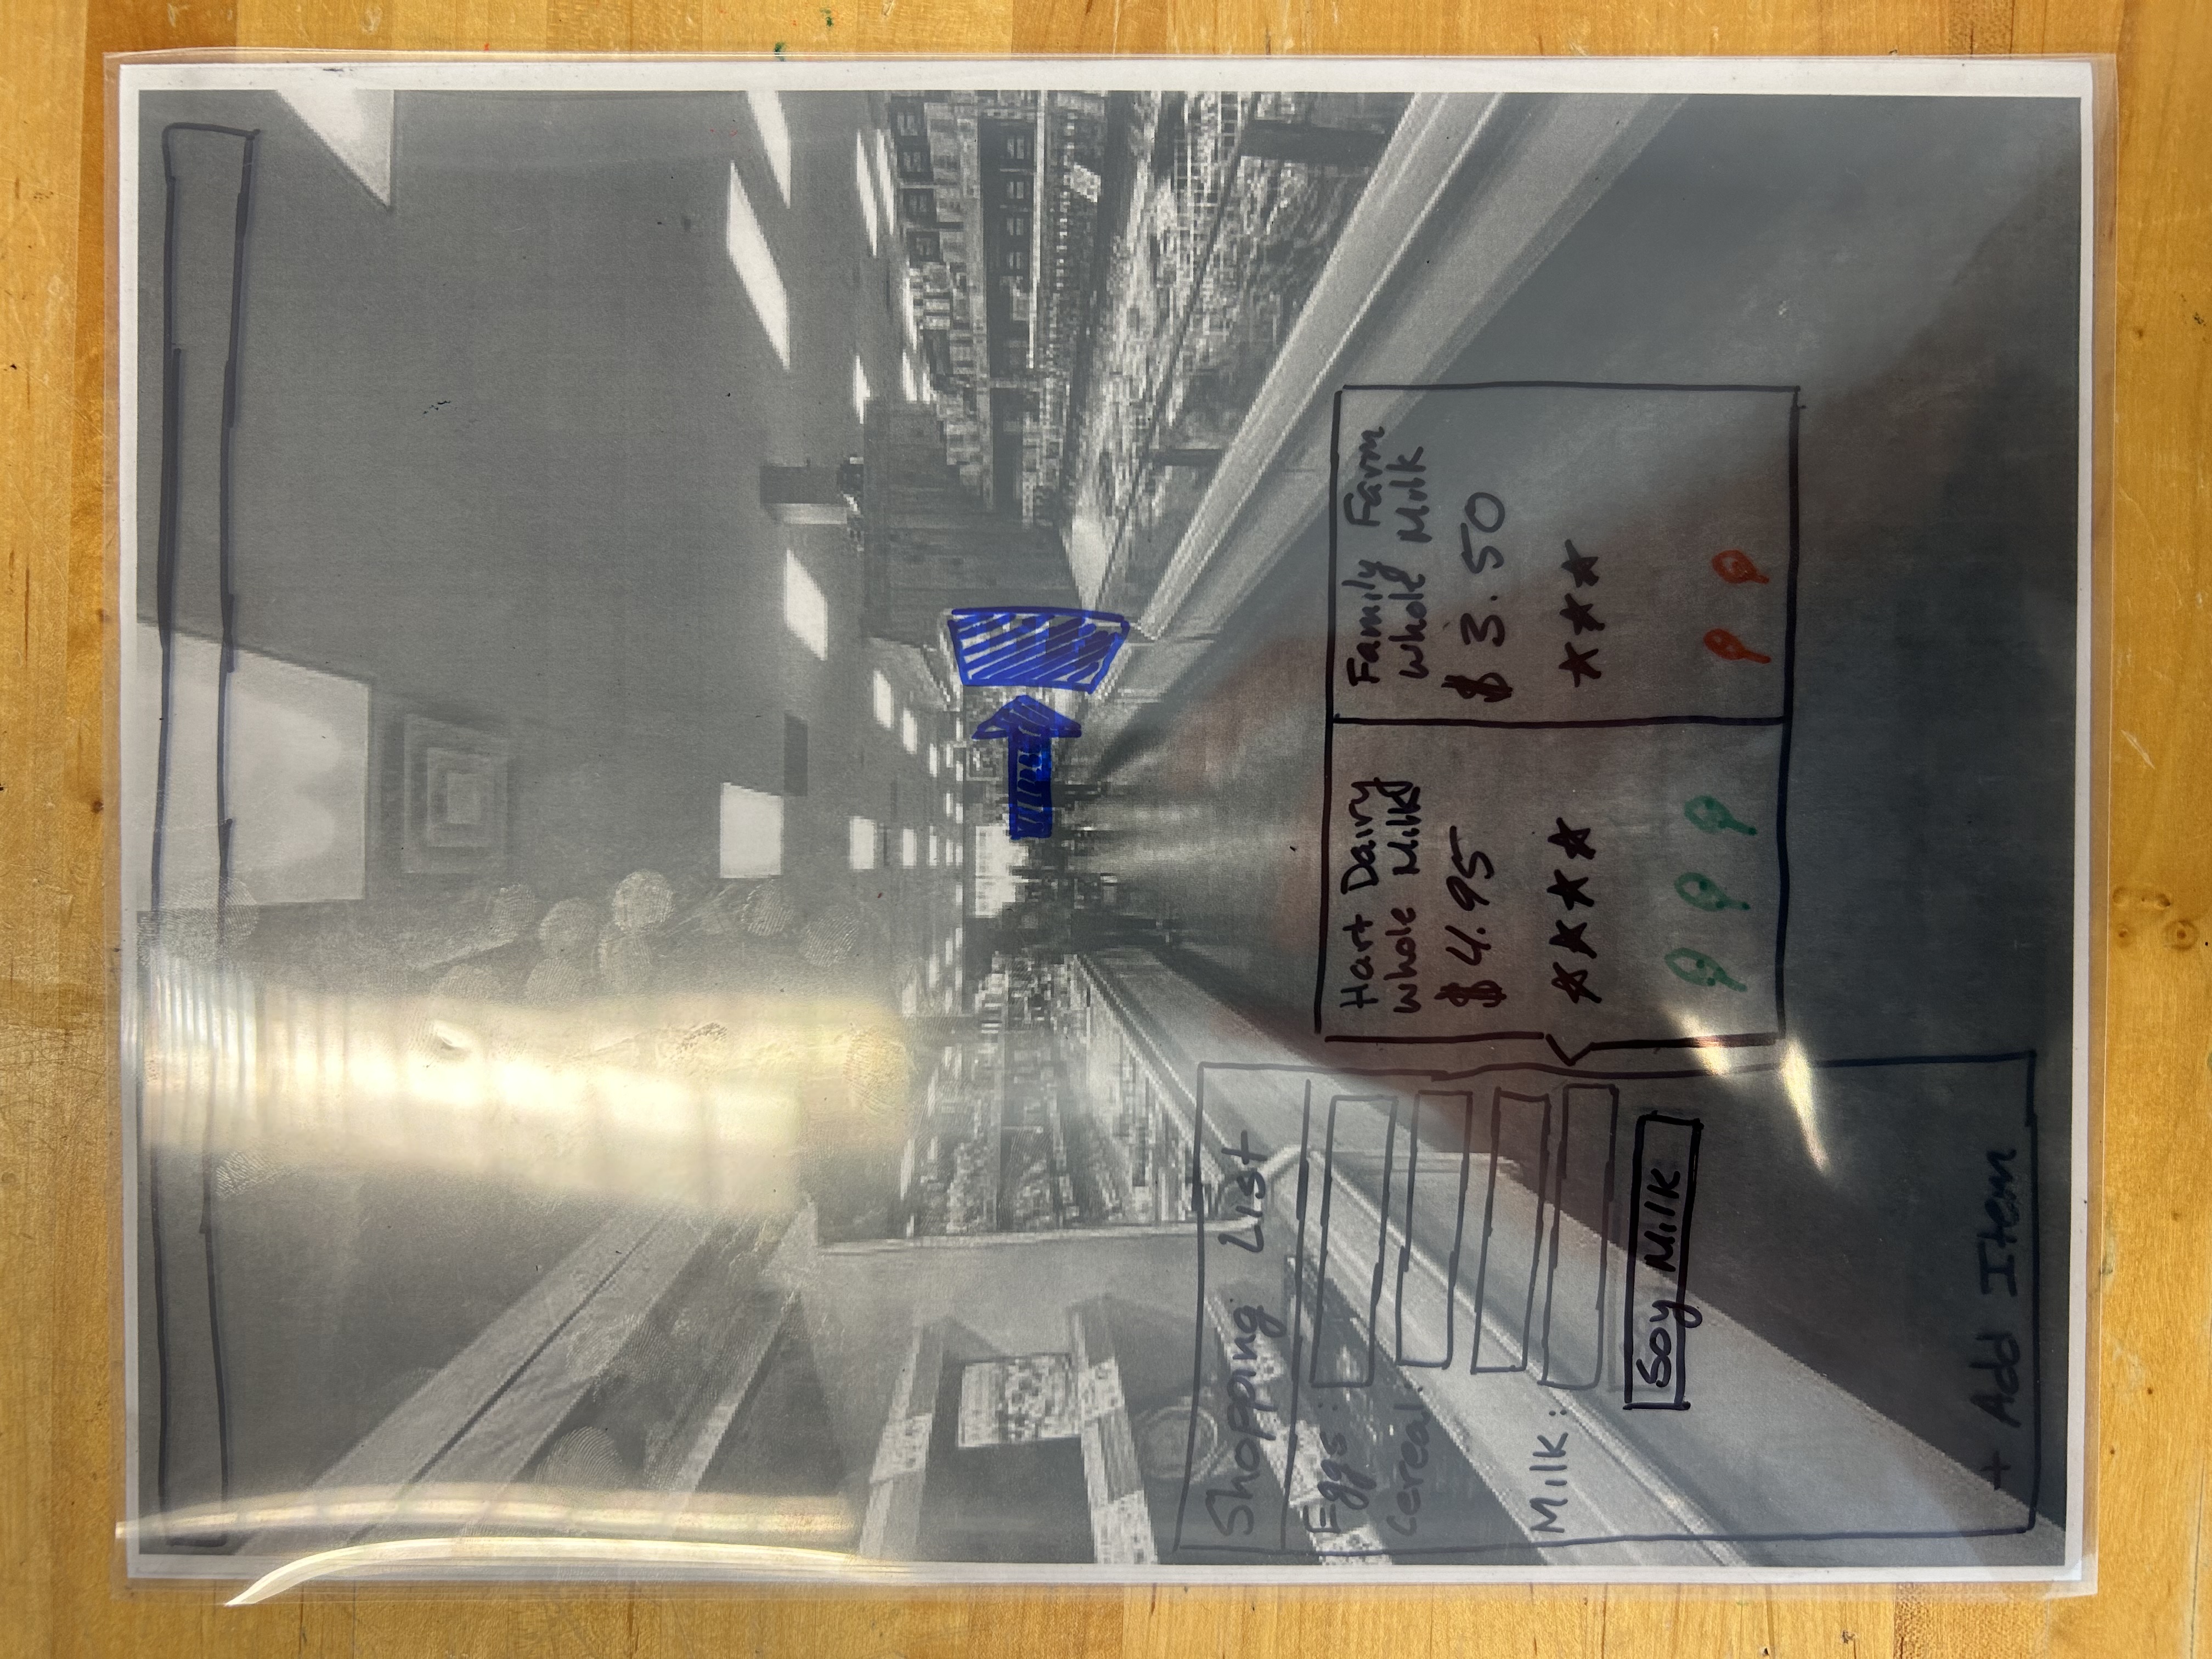 Shopping List
Eggs:
Cereal:
Milk:
Soy Milk
+ Add Item
Hart Dairy
Whole Milk
$4.95
Family Farm
Whole Milk
$3.50